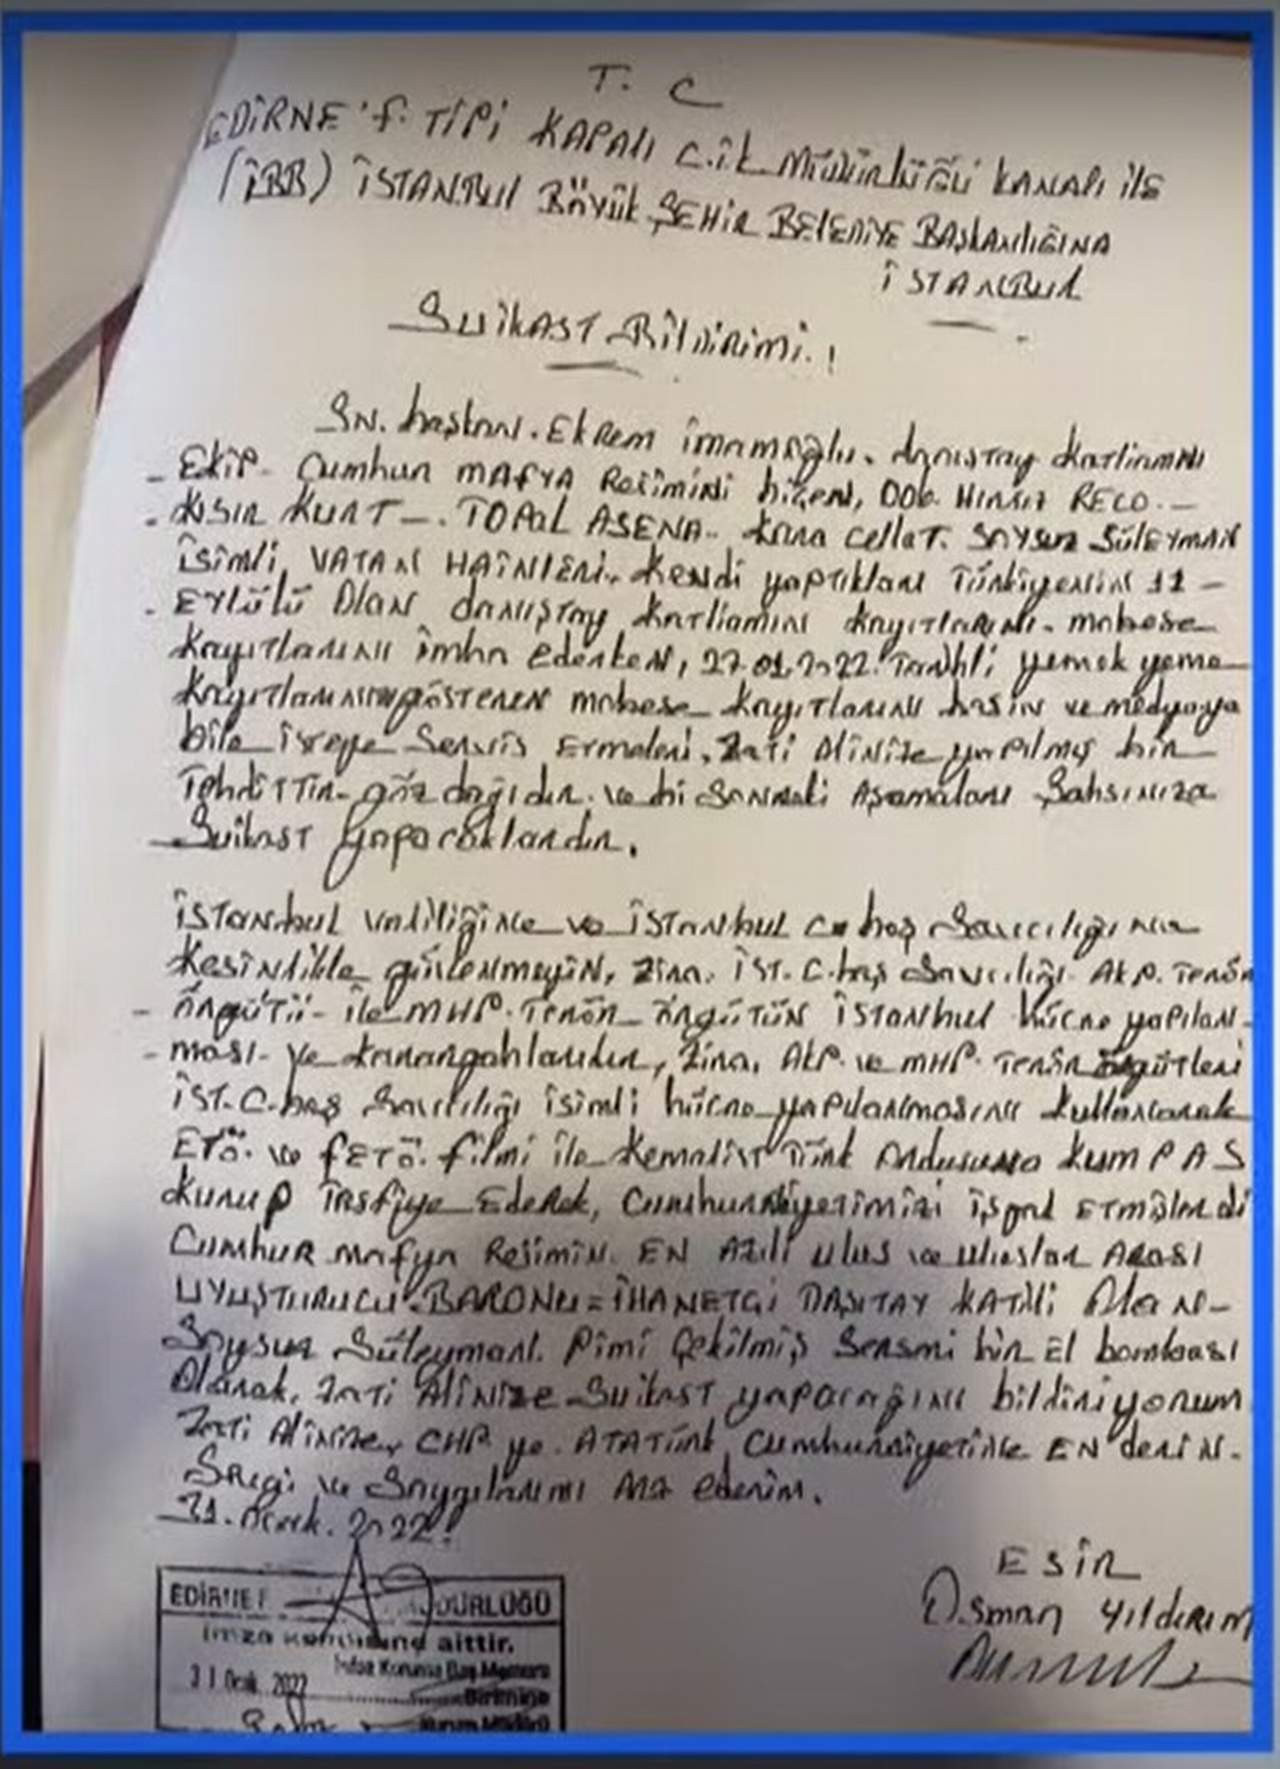 T. C
EDİRNE 'f. TİPİ KAPALI C.İK MÜDÜRLÜĞÜ KANALI ile
(İBB) İSTANBUL BÜYÜK ŞEHİR BELEDİYE BAŞKANLIĞINA
İSTANBUL
Suikast Bildirimi. !
SN. başkan. Ekrem imamoğlu. danıştay katliamını
- Ekip- Cumhur MAFYA Rejimini hizeni, DOb. HIRSIZ RECO. -
- KISIR KURT -. TOPAL ASENA.. kara cellat. soysuz SÜLEYMAN
isimli, VATAN HAİNLERİ.. kendi yaptıkları Türkiyenin 11 -
- EYLÜLÜ OLAN danıştay katliamını kayıtlarını. mobese
kayıtlarını imha ederken, 27.01.2022. Tarihli yemek yeme
kayıtlarınızı gösteren mobese kayıtlarını basın ve medyaya
bile isteye servis etmeleri. Zati Alinize yapılmış bir
Tehdittir- göz dağıdır. ve bi sonraki Aşamaları şahsınıza
Suikast yapacaklardır.
İstanbul valiliğine ve İstanbul C baş savcılığına
kesinlikle güvenmeyin, zira. İST. C.baş savcılığı. AKP. Terör
- örgütü- ile MHP. Terör örgütün İstanbul hücre yapılan-
- ması- ve karargahlarıdır, zira. AKP. ve MHP. Terör örgütleri
İST. C.baş savcılığı isimli hücre yapılanmasını kullanarak
ETÖ. ve FETÖ. filmi ile kemalist Türk ordusuna KUMPAS
kurup Tasfiye Ederek, Cumhuriyetimizi işgal etmişlerdi
Cumhur mafya Rejimin. EN Azılı ulus ve uluslar Arası
UYUŞTURUCU. BARONU = İHANETÇİ DAŞITAY KATİLİ Olan-
Soysuz Süleyman. Pimi Çekilmiş sersemi bir El bombası
Olarak, Zati Alinize Suikast yapacağını bildiriyorum
Zati Alinize, CHP ye. ATATÜRK Cumhuriyetine EN derin.
Sevgi ve Saygılarımı arz ederim.
31. Ocak. 2022.
EDİRNE F MÜDÜRLÜĞÜ
imza kendisine aittir.
31 Ocak 2022
İnfaz Koruma Baş Memuru
Birimine
Kurum Müdürü
ESİR
Osman Yıldırım